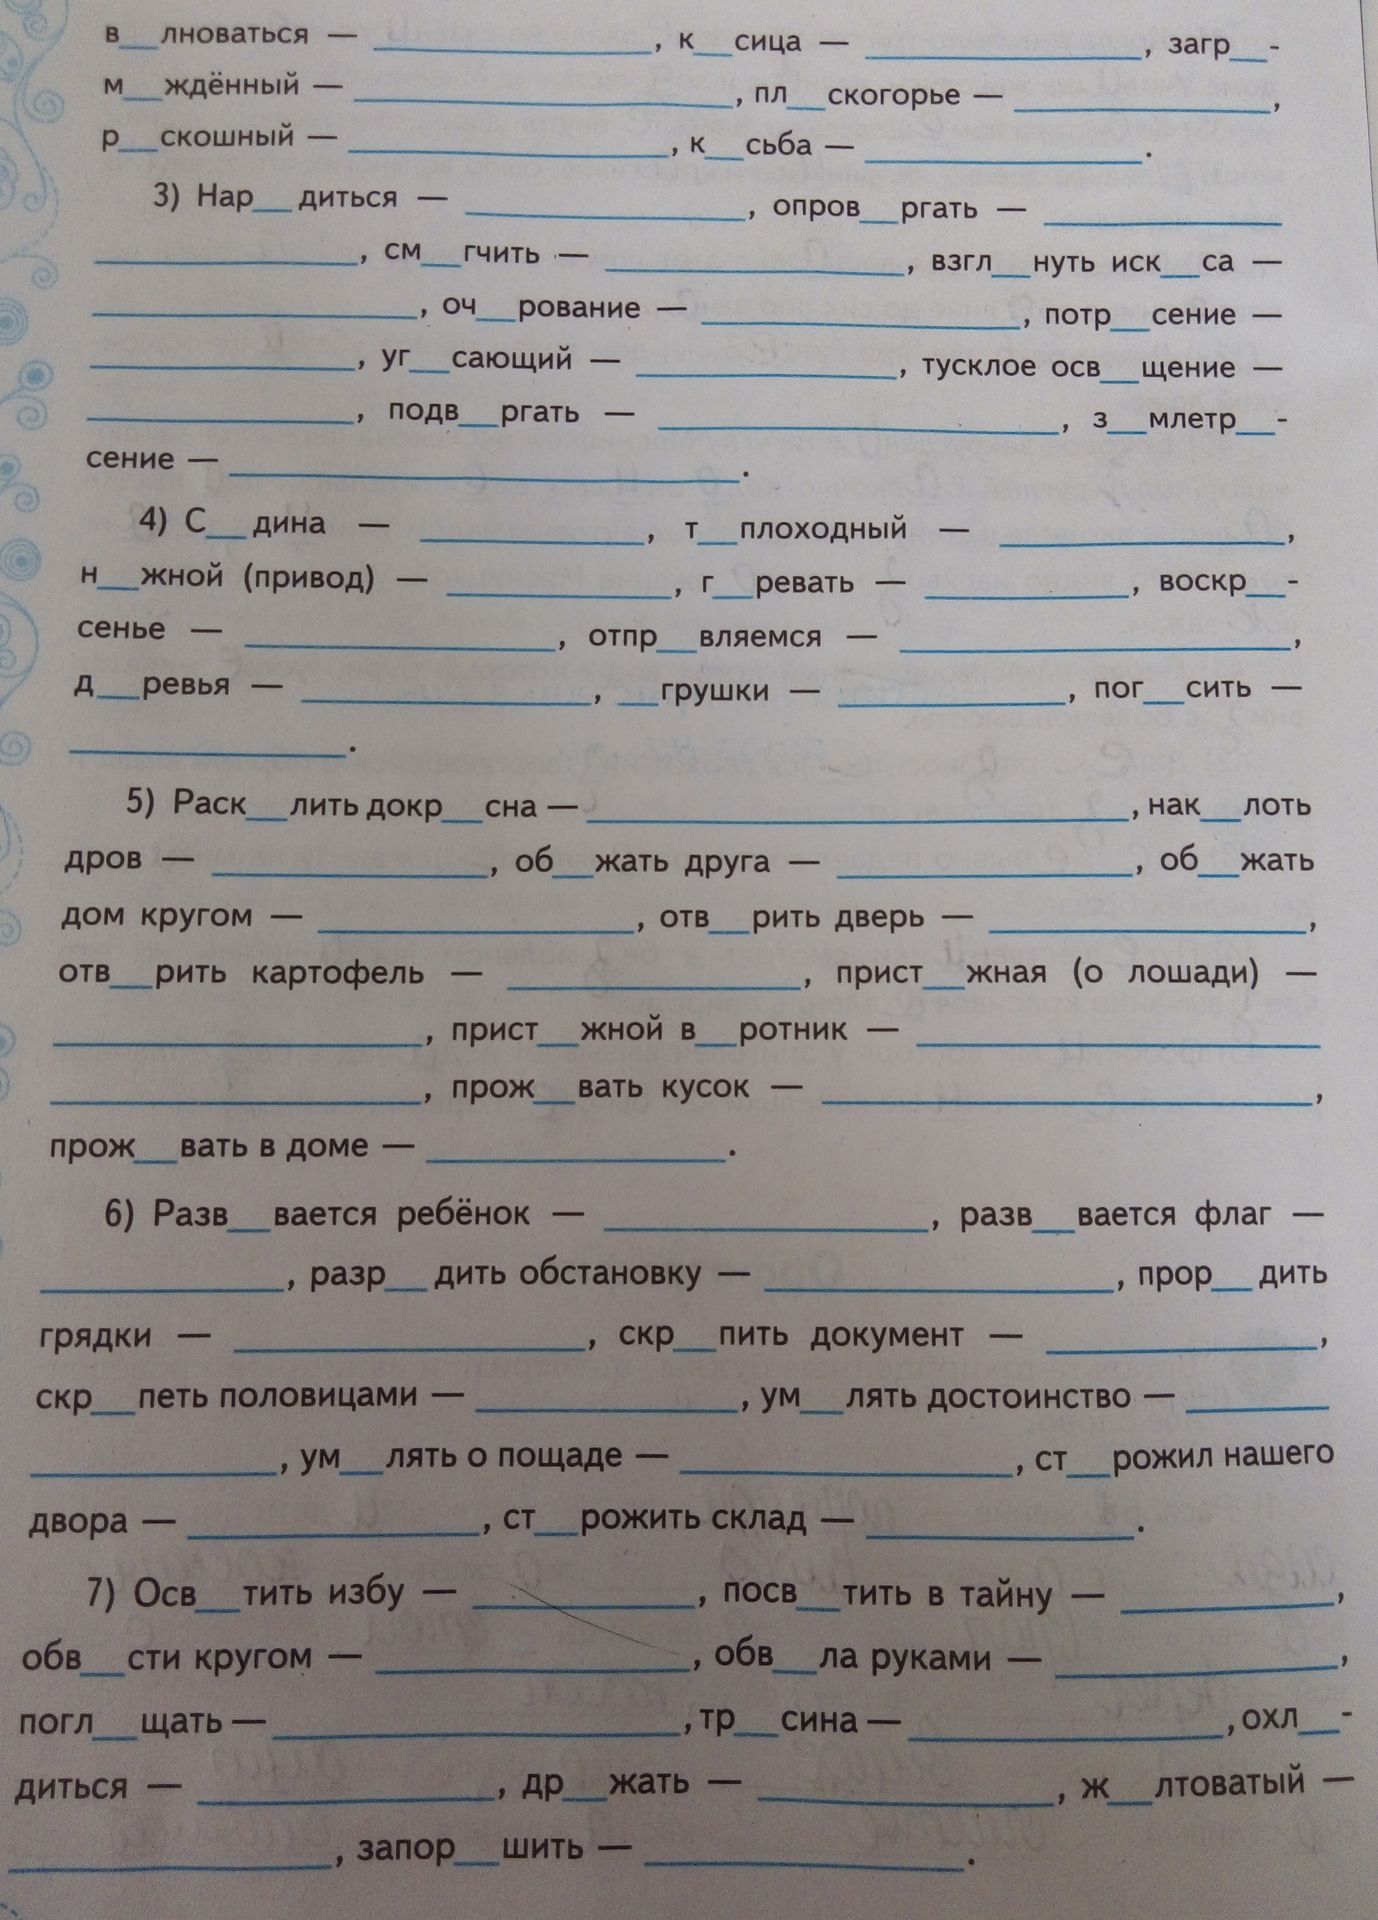 в__лноваться — ____________, к__сица — ____________, загр__-
м__ждённый — ____________, пл__скогорье — ____________,
р__скошный — ____________, к__сьба — ____________.
3) Нар__диться — ____________, опров__ргать — ____________
____________, см__гчить — ____________, взгл__нуть иск__са —
____________, оч__рование — ____________, потр__сение —
____________, уг__сающий — ____________, тусклое осв__щение —
____________, подв__ргать — ____________, з__млетр__-
сение — ____________.
4) С__дина — ____________, т__плоходный — ____________,
н__жной (привод) — ____________, г__ревать — ____________, воскр__-
сенье — ____________, отпр__вляемся — ____________,
д__ревья — ____________, __грушки — ____________, пог__сить —
____________.
5) Раск__лить докр__сна — ____________, нак__лоть
дров — ____________, об__жать друга — ____________, об__жать
дом кругом — ____________, отв__рить дверь — ____________,
отв__рить картофель — ____________, прист__жная (о лошади) —
____________, прист__жной в__ротник — ____________
____________, прож__вать кусок — ____________,
прож__вать в доме — ____________.
6) Разв__вается ребёнок — ____________, разв__вается флаг —
____________, разр__дить обстановку — ____________, прор__дить
грядки — ____________, скр__пить документ — ____________,
скр__петь половицами — ____________, ум__лять достоинство — ____________
____________, ум__лять о пощаде — ____________, ст__рожил нашего
двора — ____________, ст__рожить склад — ____________.
7) Осв__тить избу — ____________, посв__тить в тайну — ____________,
обв__сти кругом — ____________, обв__ла руками — ____________,
погл__щать — ____________, тр__сина — ____________, охл__-
диться — ____________, др__жать — ____________, ж__лтоватый —
____________, запор__шить — ____________.